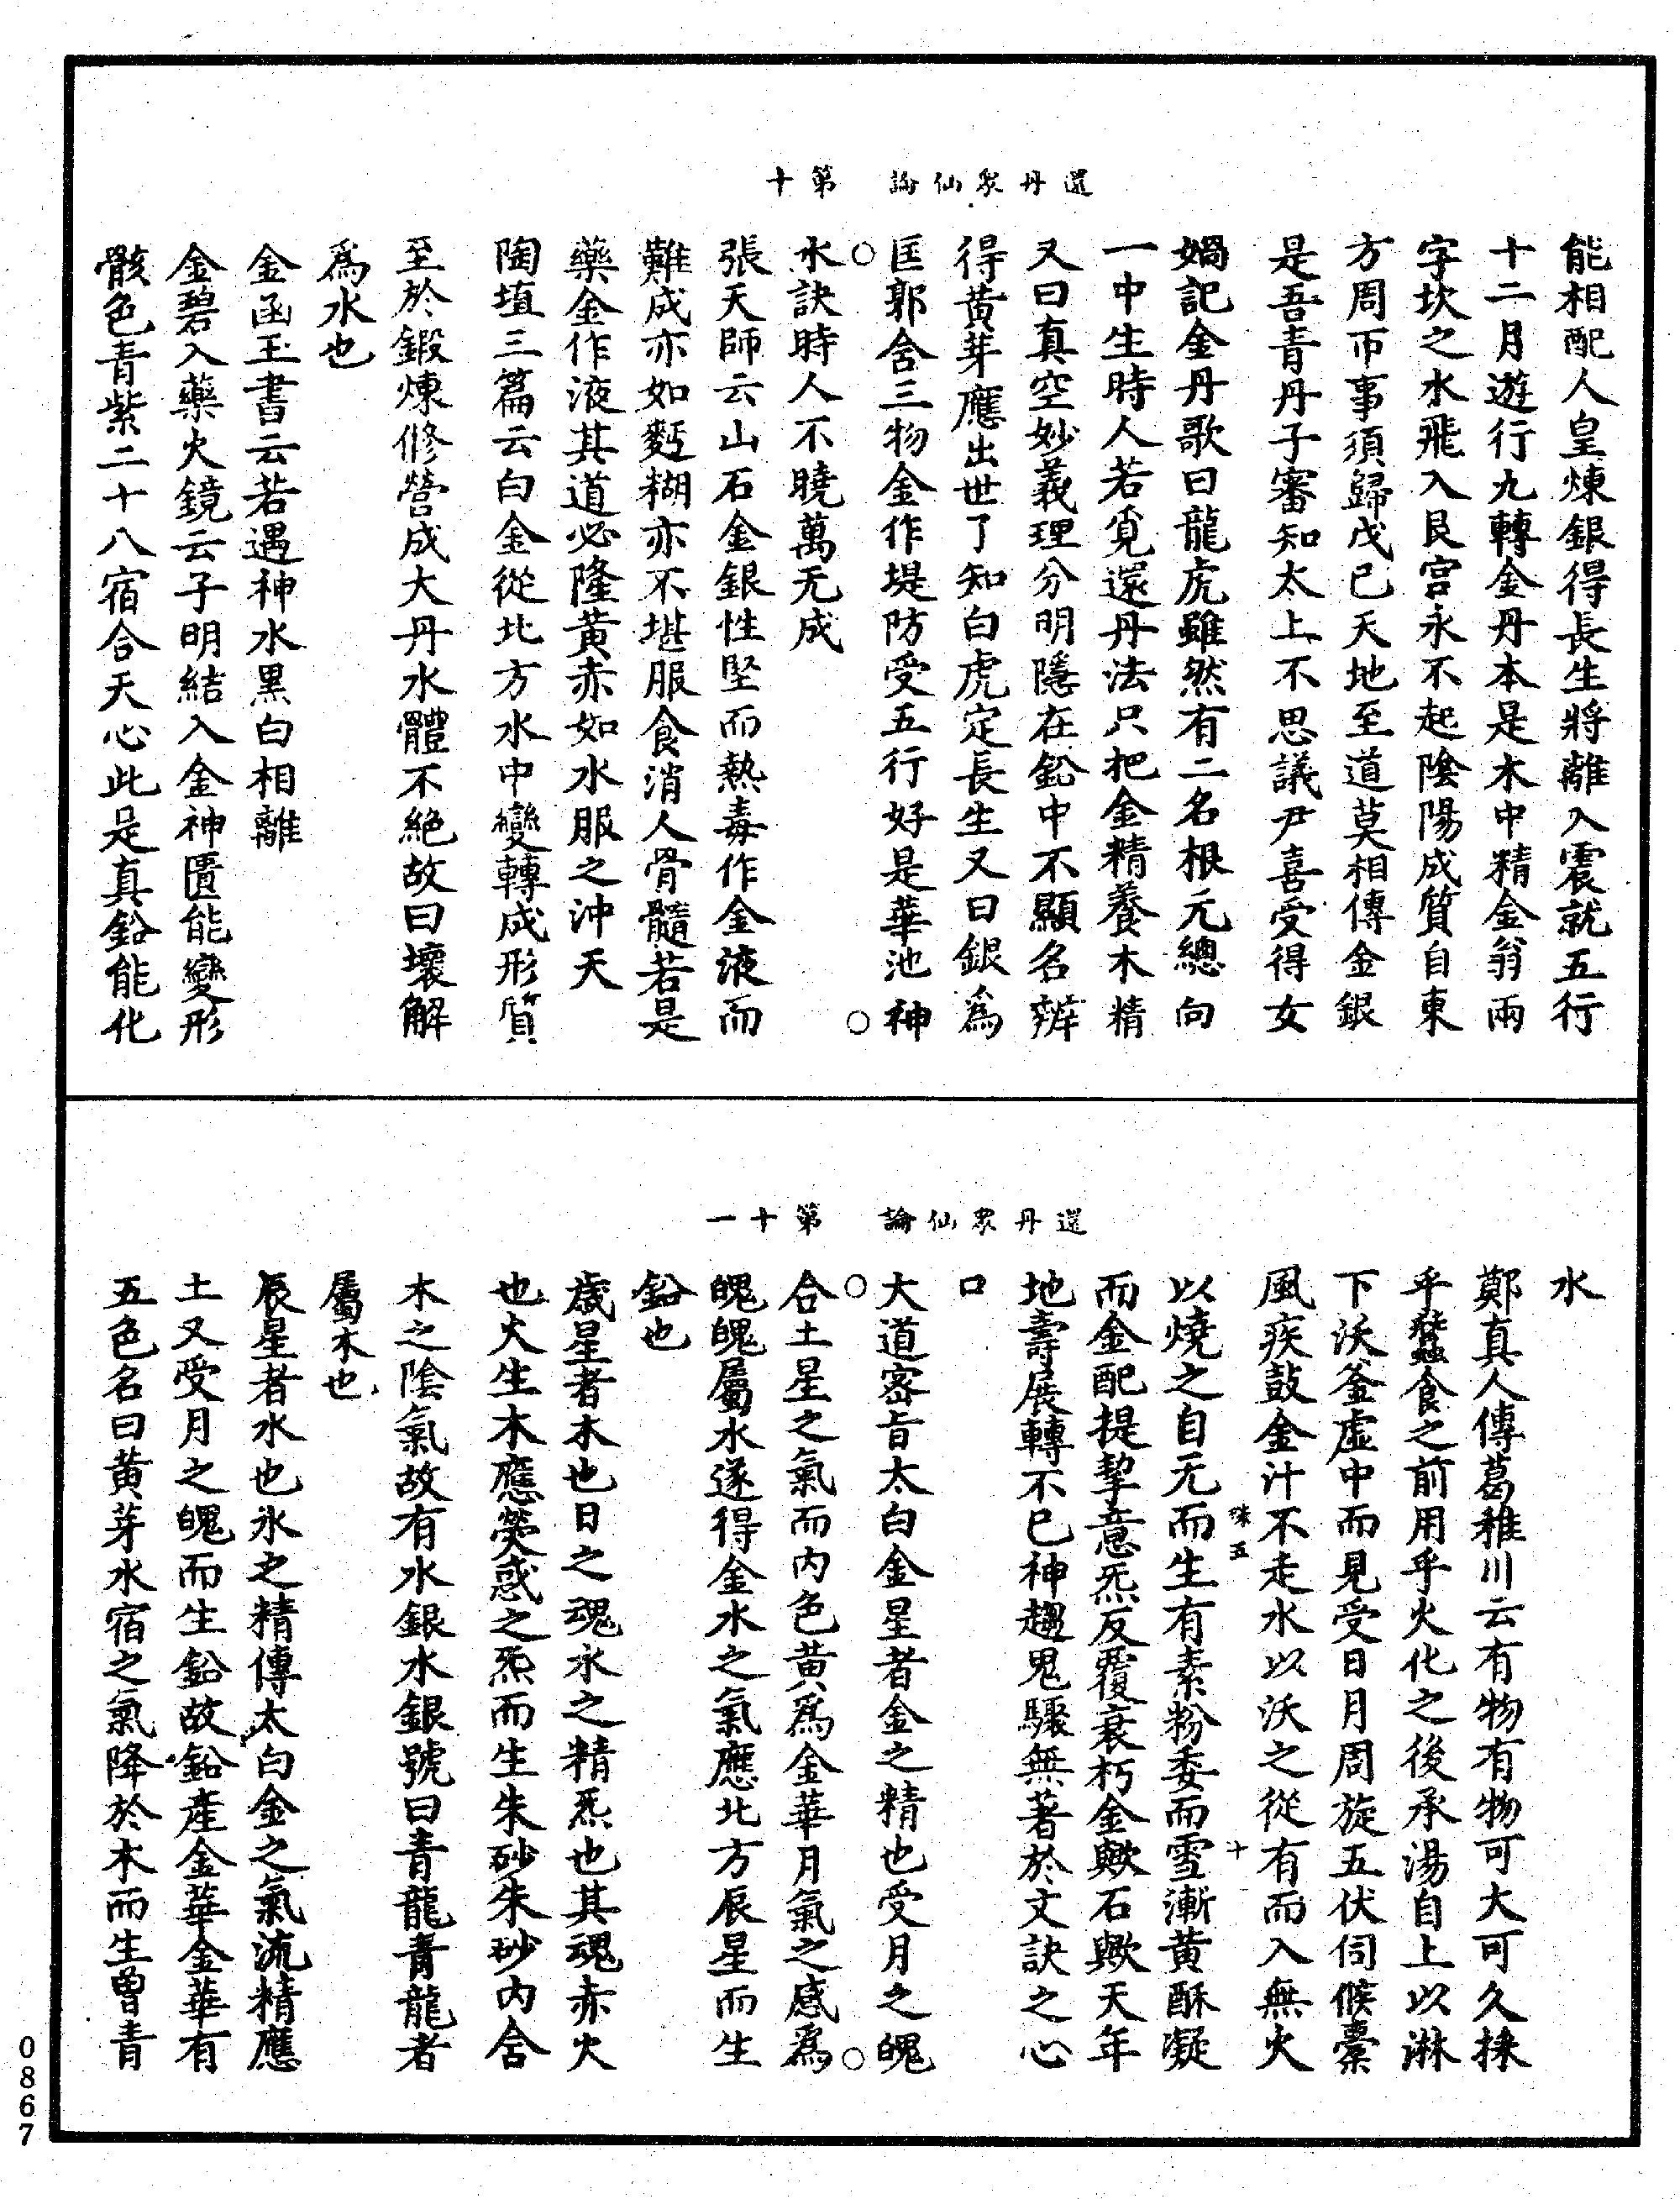 還丹眾仙論　第十
能相配人皇煉銀得長生將離入震就五行
十二月遊行九轉金丹本是木中精金翁兩
字坎之水飛入艮宮永不起陰陽成質自東
方周帀事須歸戊己天地至道莫相傳金銀
是吾青丹子審知太上不思議尹喜受得女
媧記金丹歌曰龍虎雖然有二名根元總向
一中生時人若覓還丹法只把金精養木精
又曰真空妙義理分明隱在鉛中不顯名辨
得黃芽應出世了知白虎定長生又曰銀為
匡郭含三物金作堤防受五行好是華池神
水訣時人不曉萬无成
張天師云山石金銀性堅而熱毒作金液而
難成亦如麪糊亦不堪服食消人骨髓若是
藥金作液其道必隆黃赤如水服之沖天
陶埴三篇云白金從北方水中變轉成形質
至於鍛煉修營成大丹水體不絕故曰壞解
為水也
金函玉書云若遇神水黑白相離
金碧入藥火鏡云子明結入金神匱能變形
骸色青紫二十八宿合天心此是真鉛能化
還丹眾仙論　第十一
水
鄭真人傳葛稚川云有物有物可大可久採
乎蠶食之前用乎火化之後承湯自上以淋
下沃釜虛中而見受日月周旋五伏伺候橐
風疾鼓金汁不走水以沃之從有而入無火
珠五　十
以燒之自无而生有素粉委而雪漸黃酥凝
而金配提挈意炁反覆衰朽金歟石歟天年
地壽展轉不已神趨鬼驟無著於文訣之心
口
大道密旨太白金星者金之精也受月之魄
合土星之氣而內色黃為金華月氣之感為
魄魄屬水遂得金水之氣應北方辰星而生
鉛也
歲星者木也日之魂水之精炁也其魂赤火
也火生木應熒惑之炁而生朱砂朱砂內含
木之陰氣故有水銀水銀號曰青龍青龍者
屬木也
辰星者水也水之精傳太白金之氣流精應
土又受月之魄而生鉛故鉛產金華金華有
五色名曰黃芽水宿之氣降於木而生曾青
0867